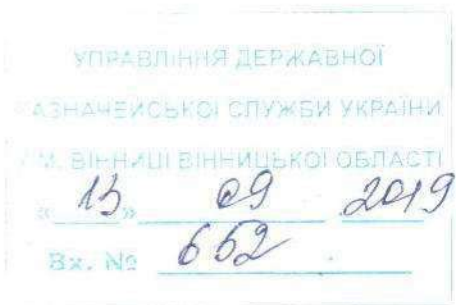 УПРАВЛІННЯ ДЕРЖАВНОЇ
КАЗНАЧЕЙСЬКОЇ СЛУЖБИ УКРАЇНИ
У М. ВІННИЦІ ВІННИЦЬКОЇ ОБЛАСТІ
« 13 » 09 2019
Вх. № 652